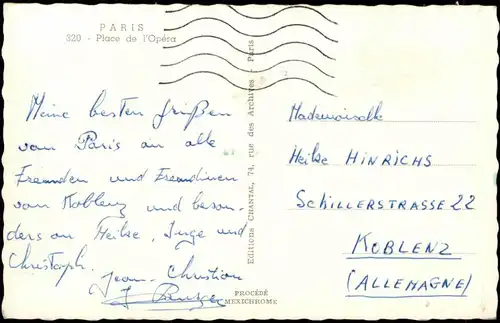 PARIS
320 - Place de l'Opéra
Meine besten grüßen
vom Paris an alle
Freunden und Freundinen
von Koblenz und beson-
ders an Heike, Inge und
Christoph.
Jean-Christian
Editions CHANTAL, 74, rue des Archives - Paris
PROCÉDÉ
MEXICHROME
Mademoiselle
Heike HINRICHS
SCHILLERSTRASSE 22
KOBLENZ
(ALLEMAGNE)